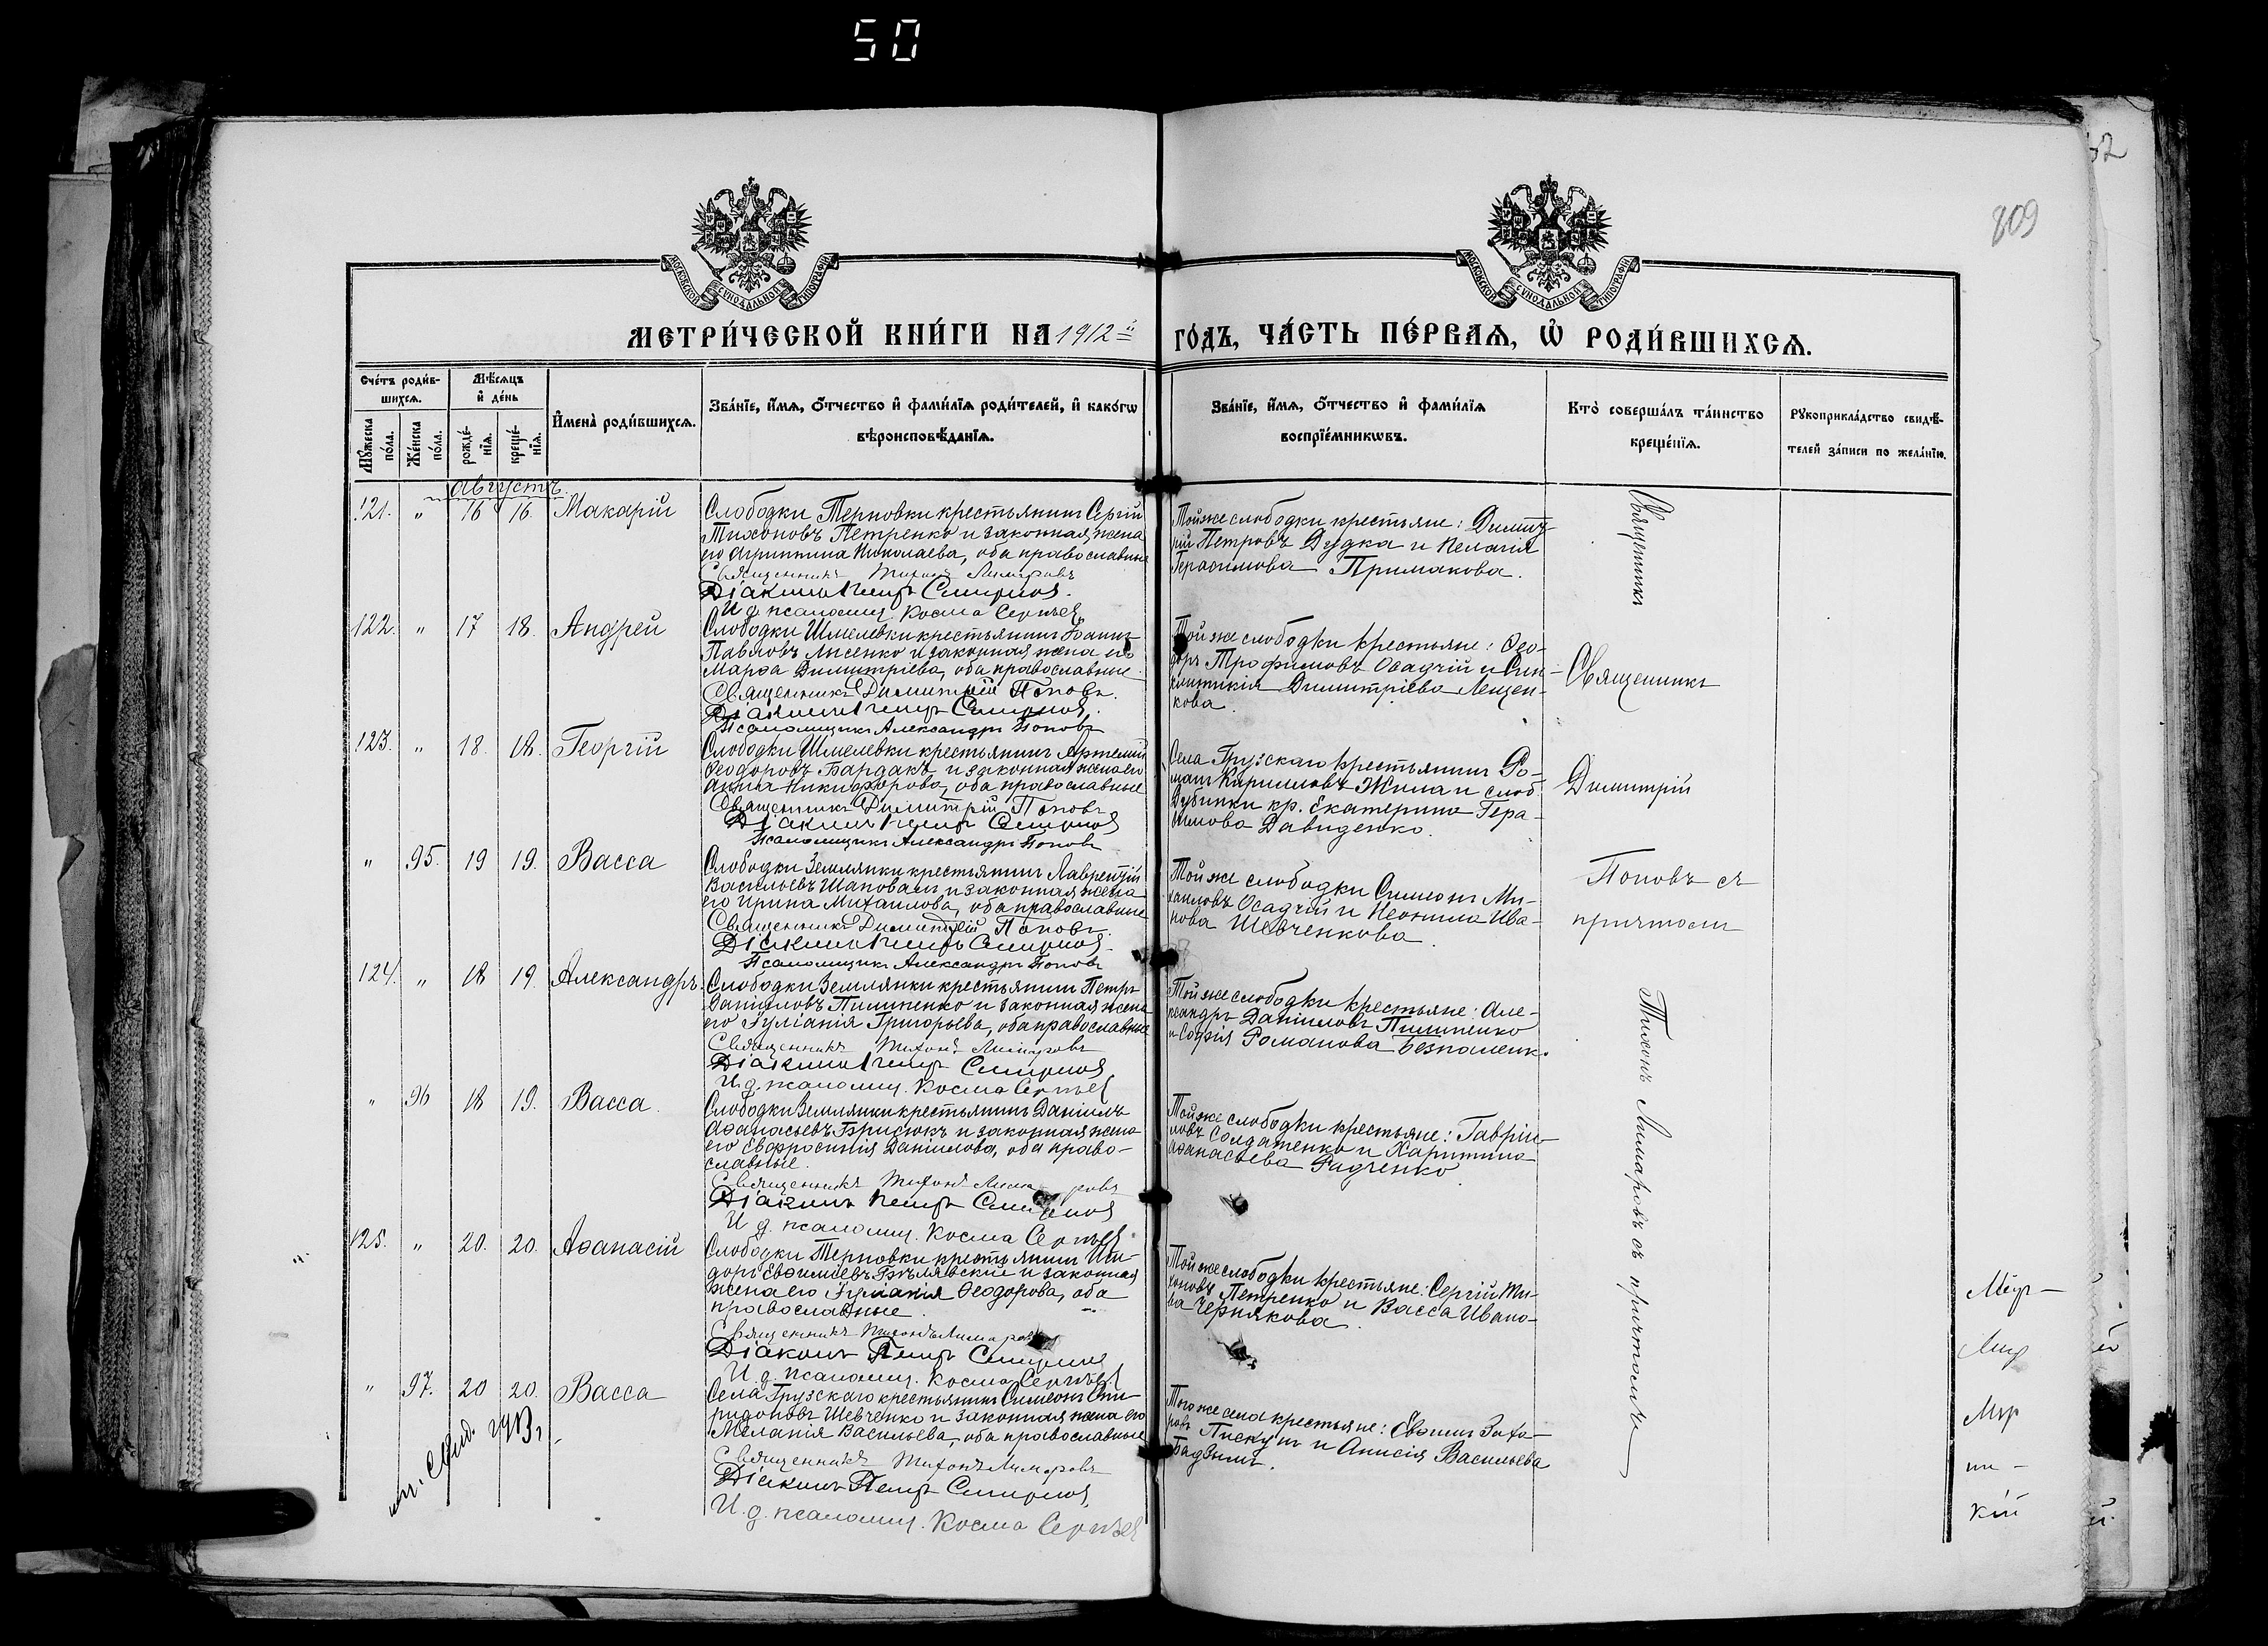 50
809
МОСКОВСКОЙ СѴНОДАЛЬНОЙ ТИПОГРАФІИ
МОСКОВСКОЙ СѴНОДАЛЬНОЙ ТИПОГРАФІИ
МЕТРИ́ЧЕСКОЙ КНИ́ГИ НА 1912й ГО́ДЪ, ЧА́СТЬ ПЕ́РВАѦ, Ѡ҆ РОДИ́ВШИХСѦ.
Сче́тъ роди́в-
шихсѧ.
Мѣ́сѧцъ
и҆ де́нь
И҆мена̀ роди́вшихсѧ.
Зва́нїе, и҆́мѧ, ѻ҆́тчество и҆ фами́лїѧ роди́телей, и҆ како́гѡ
вѣроисповѣ́данїѧ.
Зва́нїе, и҆́мѧ, ѻ҆́тчество и҆ фами́лїѧ
воспрїе́мникѡвъ.
Кто̀ соверша́лъ та́инство
креще́нїѧ.
Рꙋкоприкла́дство свидѣ́-
телей за́писи по жела́нїю.
Мꙋ́жеска
по́ла.
Же́нска
по́ла.
рожде́-
нїѧ.
креще́-
нїѧ.
Августъ
121. " 16 16. Макарій
Слободки Терновки крестьянинъ Сергій
Тихоновъ Петренко и законная жена
его Агриппина Николаева, оба православные
Священникъ Тихонъ Лимаровъ
Діаконъ Петръ Смирновъ.
И. д. псаломщ. Косма Сергѣев
Той же слободки крестьяне: Димит-
рій Петровъ Дудка и Пелагія
Герасимова Примакова.
122. " 17 18. Андрей
Слободки Шмелевки крестьянинъ Іоаннъ
Павловъ Лисенко и законная жена его
Марѳа Димитріева, оба православные.
Священникъ Димитрій Поповъ.
Діаконъ Петръ Смирновъ.
Псаломщикъ Александръ Поповъ
Той же слободки крестьяне: Ѳео-
доръ Трофимовъ Осадчій и Син-
клитикія Димитріева Лещен-
кова.
123. " 18. 18. Георгій
Слободки Шмелевки крестьянинъ Артемій
Ѳеодоровъ Бардакъ и законная жена его
Анна Никифорова, оба православные
Священникъ Димитрій Поповъ
Діаконъ Петръ Смирновъ
Псаломщикъ Александръ Поповъ
Села Грузскаго крестьянинъ Ро-
манъ Кирилловъ Жила и слоб.
Дубинки кр. Екатерина Гера-
симова Давиденко.
" 95. 19 19. Васса
Слободки Землянки крестьянинъ Лаврентій
Васильевъ Шаповалъ и законная жена
его Ирина Михаилова, оба православные
Священникъ Димитрій Поповъ.
Діаконъ Петръ Смирновъ.
Псаломщикъ Александръ Поповъ
Той же слободки Симеонъ Ми-
хаиловъ Осадчій и Неонила Ива-
нова Шевченкова.
124. " 18 19. Александръ.
Слободки Землянки крестьянинъ Петръ
Даніиловъ Пилипенко и законная жена
его Іуліанія Григорьева, оба православные
Священникъ Тихонъ Лимаровъ
Діаконъ Петръ Смирновъ
И. д. псаломщ. Косма Сергѣев
Той же слободки крестьяне: Але-
ксандръ Даніиловъ Пилипенко
и Софія Романова Безпаленк.
" 96 18 19. Васса.
Слободки Землянки крестьянинъ Даніилъ
Аѳанасьевъ Брисюкъ и законная жена
его Евфросинія Даніилова, оба право-
славные.
Священникъ Тихонъ Лимаровъ
Діаконъ Петръ Смирновъ
И. д. псаломщ. Косма Сергѣев
Той же слободки крестьяне: Гавріи-
ловъ Солдатенко и Харитина
Аѳанасьева Радченко.
125. " 20. 20. Аѳанасій
Слободки Терновки крестьянинъ Иси-
доръ Евѳиміевъ Бѣлявскій и законная
жена его Іуліанія Ѳеодорова, оба
православные.
Священникъ Тихонъ Лимаровъ
Діаконъ Петръ Смирновъ
И. д. псаломщ. Косма Сергѣев
Той же слободки крестьяне: Сергій Ти-
хоновъ Петренко и Васса Ивано-
ва Чернякова.
" 97. 20 20. Васса
Села Грузскаго крестьянинъ Симеонъ Спи-
ридоновъ Шевченко и законная жена его
Меланія Васильева, оба православные
Священникъ Тихонъ Лимаровъ
Діаконъ Петръ Смирновъ
И. д. псаломщ. Косма Сергѣев
Того же села крестьяне: Евѳимъ Заха-
ровъ Пискунъ и Анисія Васильева
Бадзымъ.
Священникъ
Священникъ
Димитрій
Поповъ съ
причтомъ
Тихонъ Лимаровъ съ причтомъ